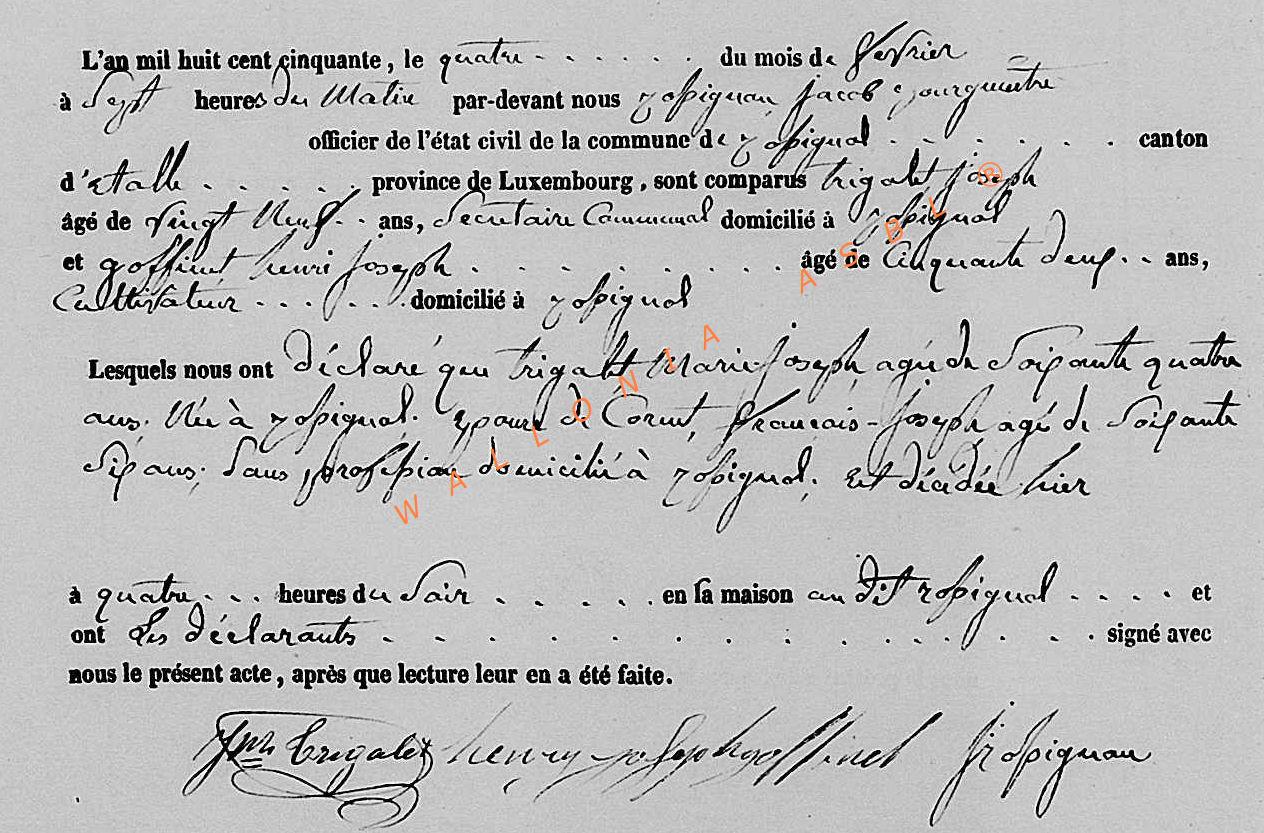 L'an mil huit cent cinquante, le quatre . . . . . . du mois de fevrier
à Sept heures du Matin par-devant nous rossignon jacob Bourgmestre
officier de l'état civil de la commune de rossignol . . . . . . canton
d'Etalle . . . . . province de Luxembourg, sont comparus trigalet joseph
âgé de vingt Neuf . . ans, Secretaire Communal domicilié à rossignol
et goffinet henri joseph . . . . . . . . . âgé de Cinquante deux . . ans,
Cultivateur . . . . . . domicilié à rossignol
Lesquels nous ont déclaré que trigalet Marie joseph agée de Soixante quatre
ans, Née à rossignol, Epouse de Cornet, francais-joseph agé de Soixante
Six ans, Sans profession domicilié à rossignol, est décédée hier
à quatre . . . heures du Soir . . . . . en sa maison au dit rossignol . . . . et
ont Les déclarants . . . . . . . . . . . . . signé avec
nous le présent acte, après que lecture leur en a été faite.
Trigalet henry joseph goffinet J rossignon
WALLONIA ASBL ®